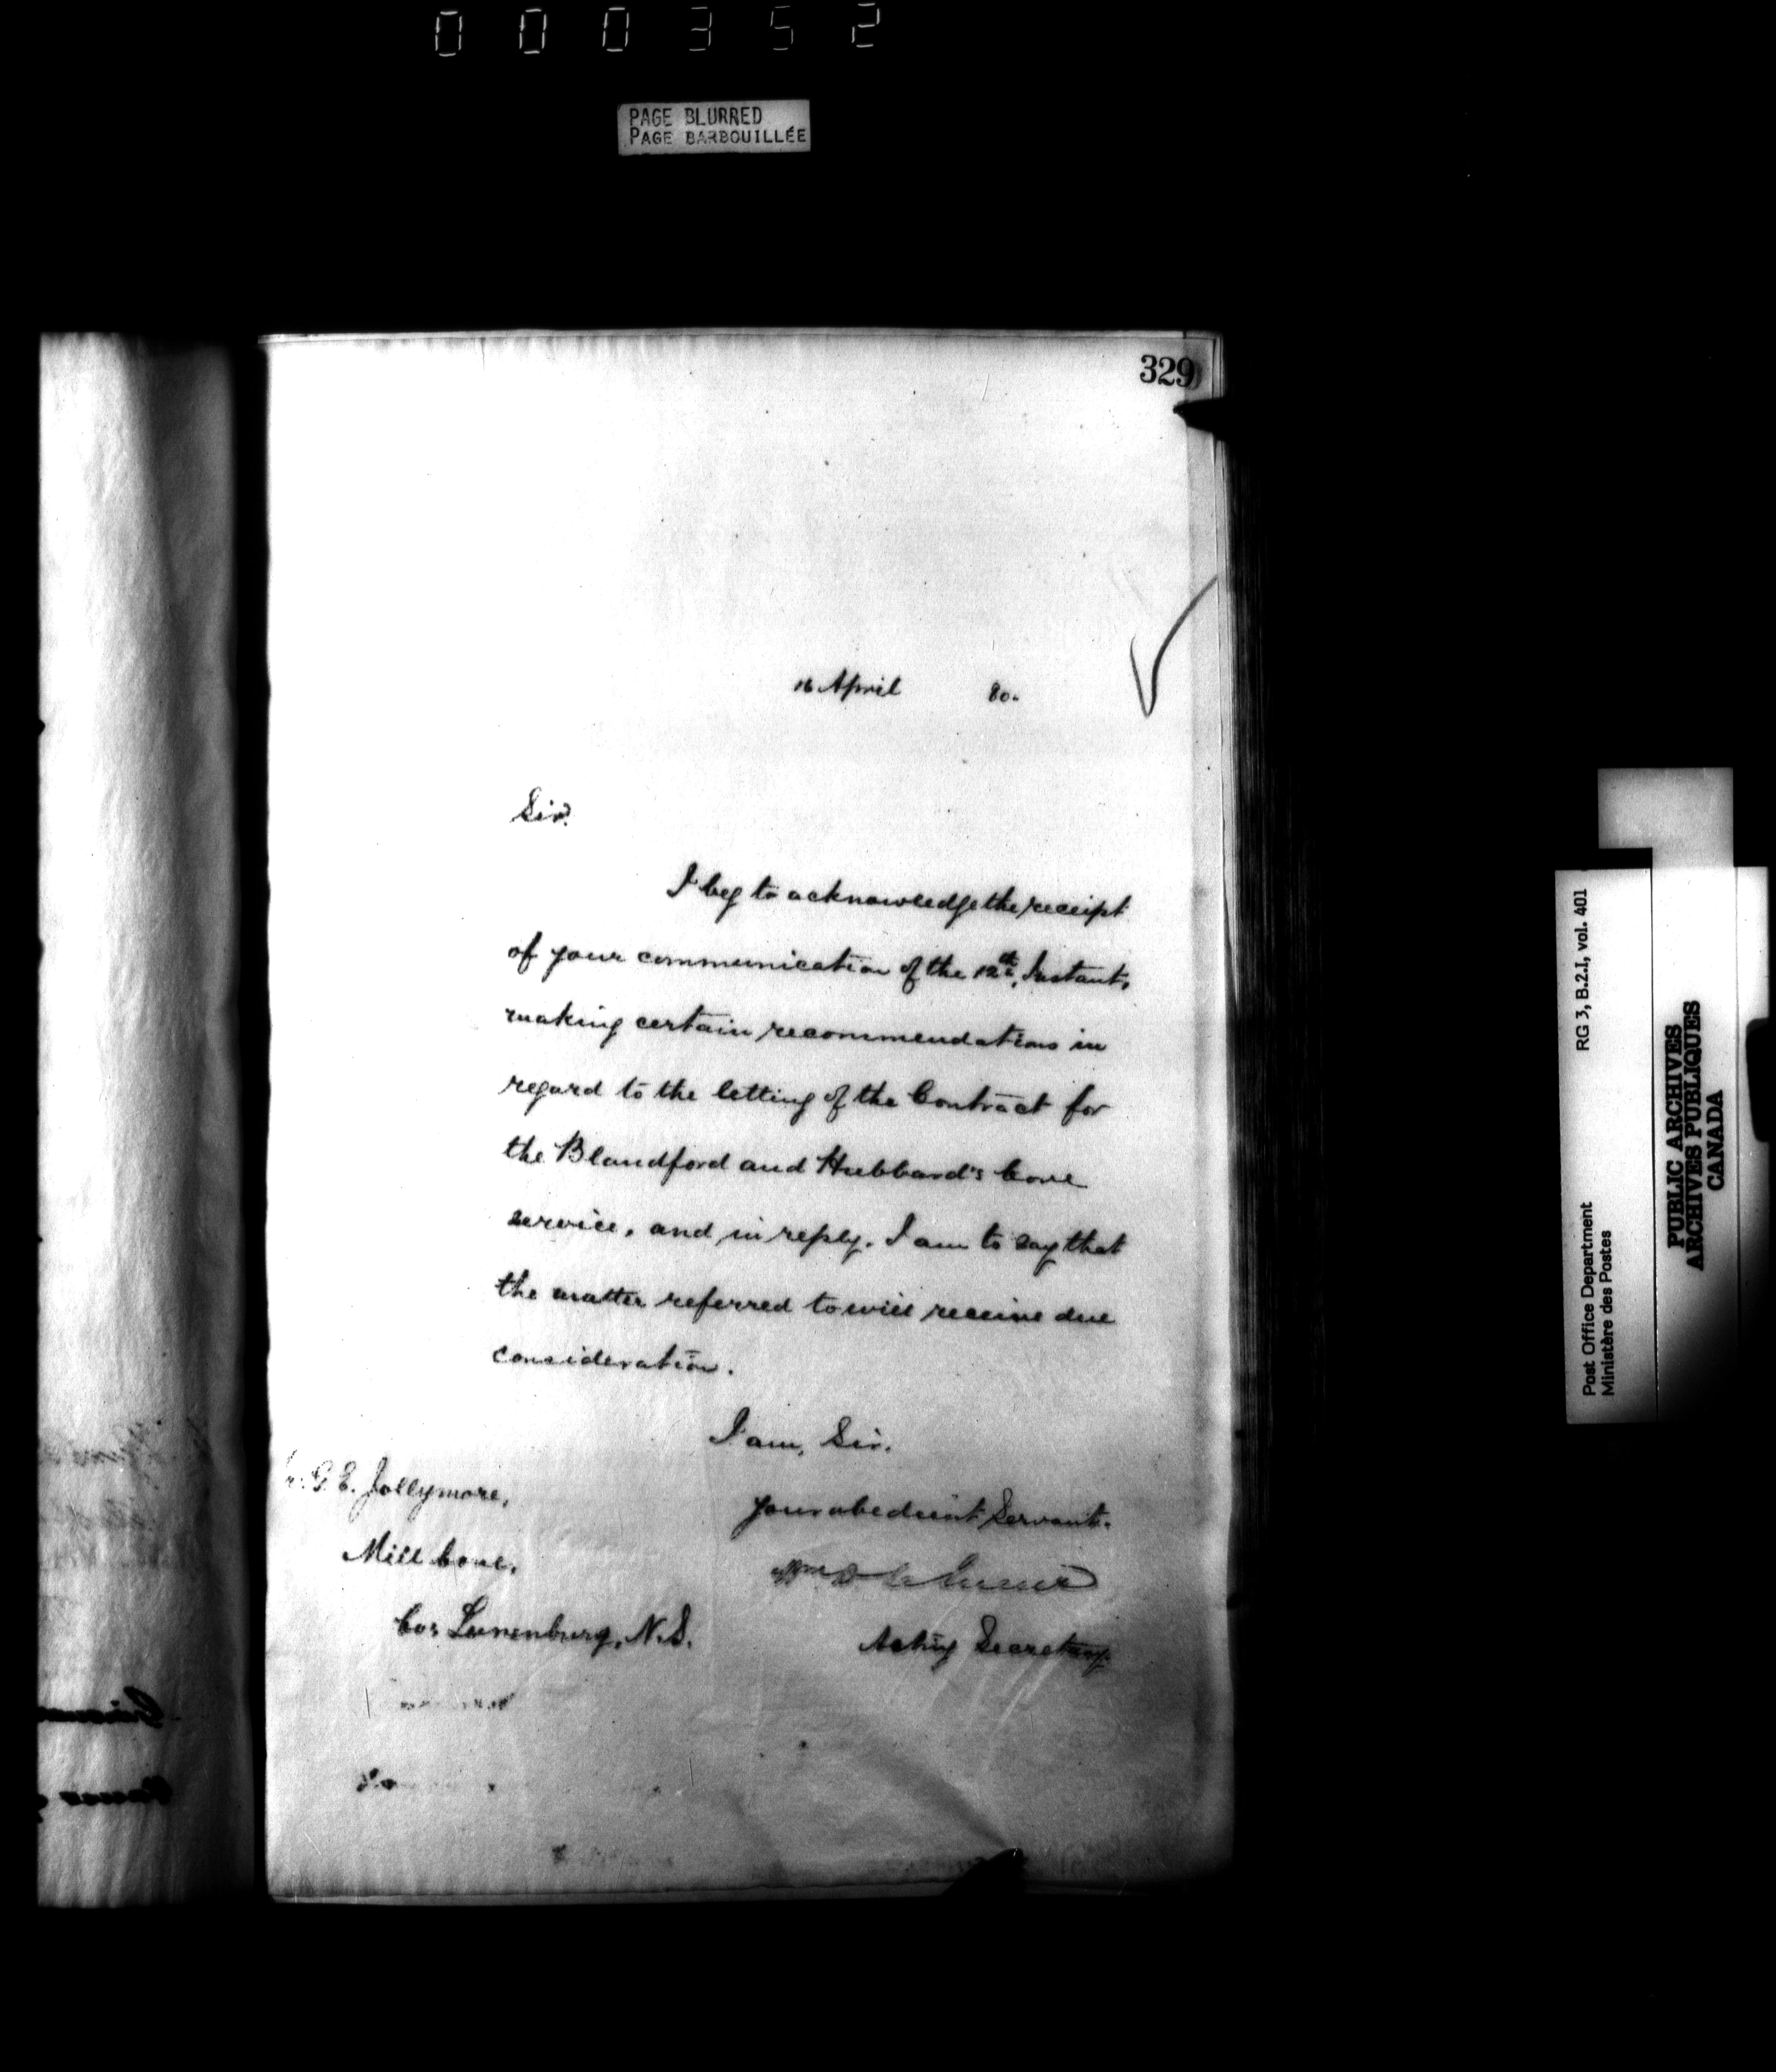 000352
PAGE BLURRED
PAGE BARBOUILLÉE
329
16 April 80.
Sir.
I beg to acknowledge the receipt
of your communication of the 12th, Instant,
making certain recommendations in
regard to the letting of the Contract for
the Blandford and Hubbard's Cove
service, and in reply. I am to say that
the matter referred to will receive due
consideration.
I am, Sir.
Your obedient Servant.
Acting Secretary.
G. E. Jollymore,
Mill Cove,
Co: Lunenburg, N.S.
Post Office Department RG 3, B.2.1, vol. 401
Ministère des Postes
PUBLIC ARCHIVES
ARCHIVES PUBLIQUES
CANADA